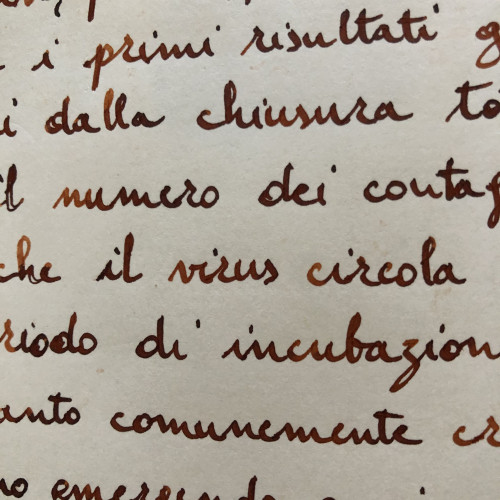 i primi risultati g
i dalla chiusura to
il numero dei contag
che il virus circola
riodo di incubazion
anto comunemente cr
no emergendo